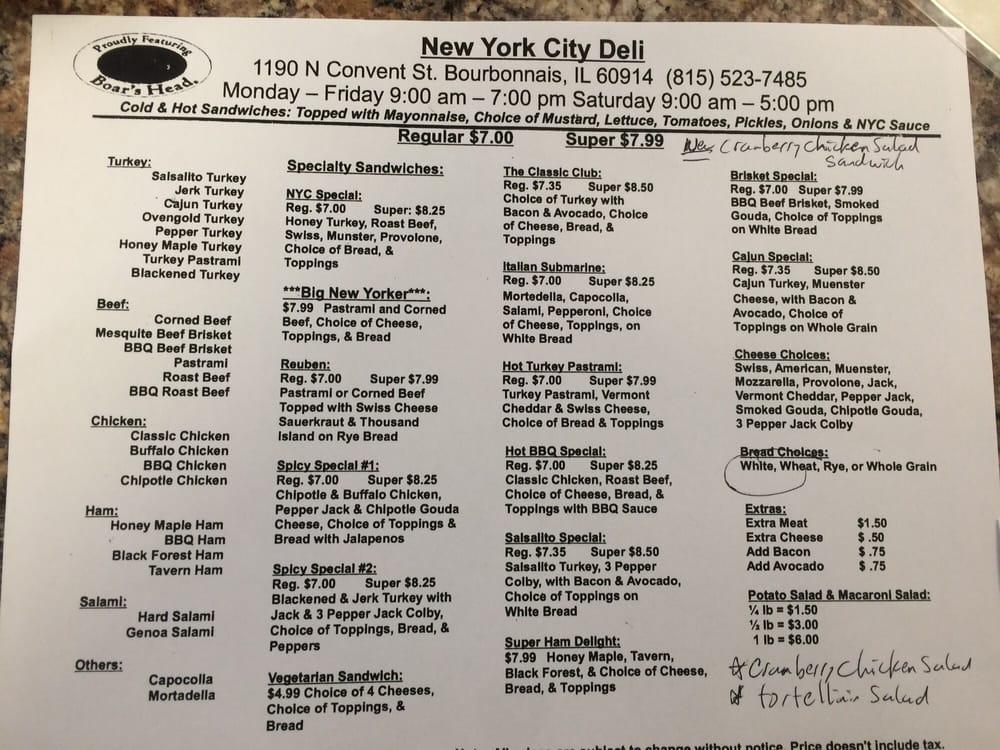 Proudly Featuring
Boar's Head.
New York City Deli
1190 N Convent St. Bourbonnais, IL 60914 (815) 523-7485
Monday – Friday 9:00 am – 7:00 pm Saturday 9:00 am – 5:00 pm
Cold & Hot Sandwiches: Topped with Mayonnaise, Choice of Mustard, Lettuce, Tomatoes, Pickles, Onions & NYC Sauce
Regular $7.00 Super $7.99
New Cranberry Chicken Salad
Sandwich
Turkey:
Salsalito Turkey
Jerk Turkey
Cajun Turkey
Ovengold Turkey
Pepper Turkey
Honey Maple Turkey
Turkey Pastrami
Blackened Turkey
Beef:
Corned Beef
Mesquite Beef Brisket
BBQ Beef Brisket
Pastrami
Roast Beef
BBQ Roast Beef
Chicken:
Classic Chicken
Buffalo Chicken
BBQ Chicken
Chipotle Chicken
Ham:
Honey Maple Ham
BBQ Ham
Black Forest Ham
Tavern Ham
Salami:
Hard Salami
Genoa Salami
Others:
Capocolla
Mortadella
Specialty Sandwiches:
NYC Special:
Reg. $7.00 Super: $8.25
Honey Turkey, Roast Beef,
Swiss, Munster, Provolone,
Choice of Bread, &
Toppings
***Big New Yorker***:
$7.99 Pastrami and Corned
Beef, Choice of Cheese,
Toppings, & Bread
Reuben:
Reg. $7.00 Super $7.99
Pastrami or Corned Beef
Topped with Swiss Cheese
Sauerkraut & Thousand
Island on Rye Bread
Spicy Special #1:
Reg. $7.00 Super $8.25
Chipotle & Buffalo Chicken,
Pepper Jack & Chipotle Gouda
Cheese, Choice of Toppings &
Bread with Jalapenos
Spicy Special #2:
Reg. $7.00 Super $8.25
Blackened & Jerk Turkey with
Jack & 3 Pepper Jack Colby,
Choice of Toppings, Bread, &
Peppers
Vegetarian Sandwich:
$4.99 Choice of 4 Cheeses,
Choice of Toppings, &
Bread
The Classic Club:
Reg. $7.35 Super $8.50
Choice of Turkey with
Bacon & Avocado, Choice
of Cheese, Bread, &
Toppings
Italian Submarine:
Reg. $7.00 Super $8.25
Mortedella, Capocolla,
Salami, Pepperoni, Choice
of Cheese, Toppings, on
White Bread
Hot Turkey Pastrami:
Reg. $7.00 Super $7.99
Turkey Pastrami, Vermont
Cheddar & Swiss Cheese,
Choice of Bread & Toppings
Hot BBQ Special:
Reg. $7.00 Super $8.25
Classic Chicken, Roast Beef,
Choice of Cheese, Bread, &
Toppings with BBQ Sauce
Salsalito Special:
Reg. $7.35 Super $8.50
Salsalito Turkey, 3 Pepper
Colby, with Bacon & Avocado,
Choice of Toppings on
White Bread
Super Ham Delight:
$7.99 Honey Maple, Tavern,
Black Forest, & Choice of Cheese,
Bread, & Toppings
Brisket Special:
Reg. $7.00 Super $7.99
BBQ Beef Brisket, Smoked
Gouda, Choice of Toppings
on White Bread
Cajun Special:
Reg. $7.35 Super $8.50
Cajun Turkey, Muenster
Cheese, with Bacon &
Avocado, Choice of
Toppings on Whole Grain
Cheese Choices:
Swiss, American, Muenster,
Mozzarella, Provolone, Jack,
Vermont Cheddar, Pepper Jack,
Smoked Gouda, Chipotle Gouda,
3 Pepper Jack Colby
Bread Choices:
White, Wheat, Rye, or Whole Grain
Extras:
Extra Meat $1.50
Extra Cheese $ .50
Add Bacon $ .75
Add Avocado $ .75
Potato Salad & Macaroni Salad:
¼ lb = $1.50
½ lb = $3.00
1 lb = $6.00
☆ Cranberry Chicken Salad
☆ tortellini Salad
subject to change without notice. Price doesn't include tax.